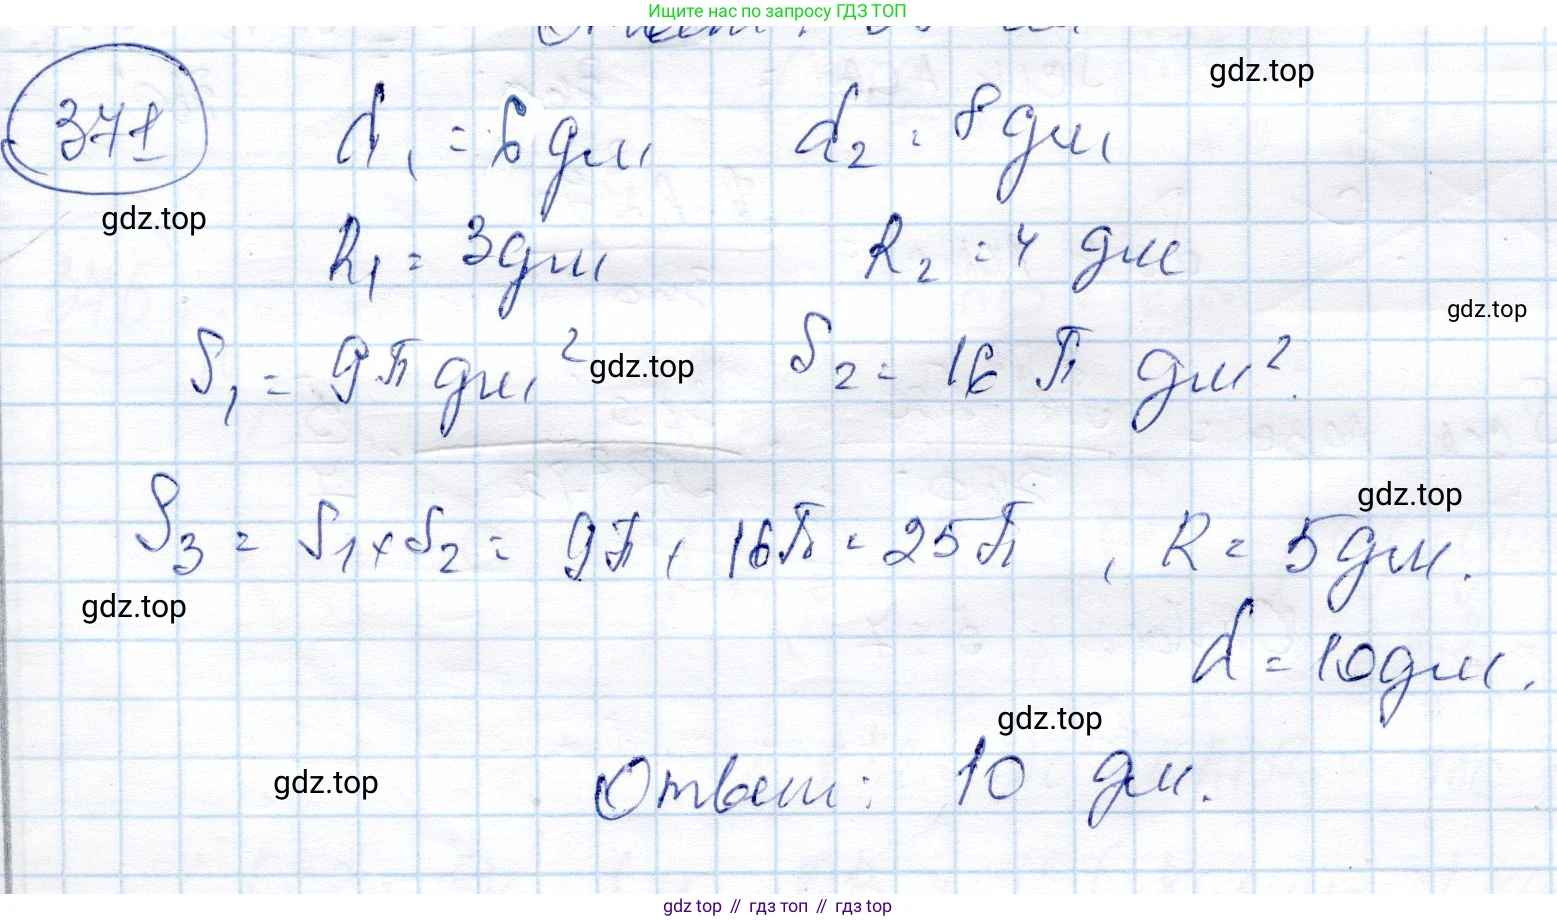 Ищите нас по запросу ГДЗ ТОП
gdz.top
371 d₁ = 6 дм d₂ = 8 дм
gdz.top
R₁ = 3 дм R₂ = 4 дм
gdz.top
S₁ = 9π дм² gdz.top S₂ = 16 π дм².
gdz.top
S₃ = S₁ + S₂ = 9π + 16π = 25π, R = 5 дм.
gdz.top
d = 10 дм.
gdz.top
gdz.top
Ответ: 10 дм.
gdz top // гдз топ // гдз top